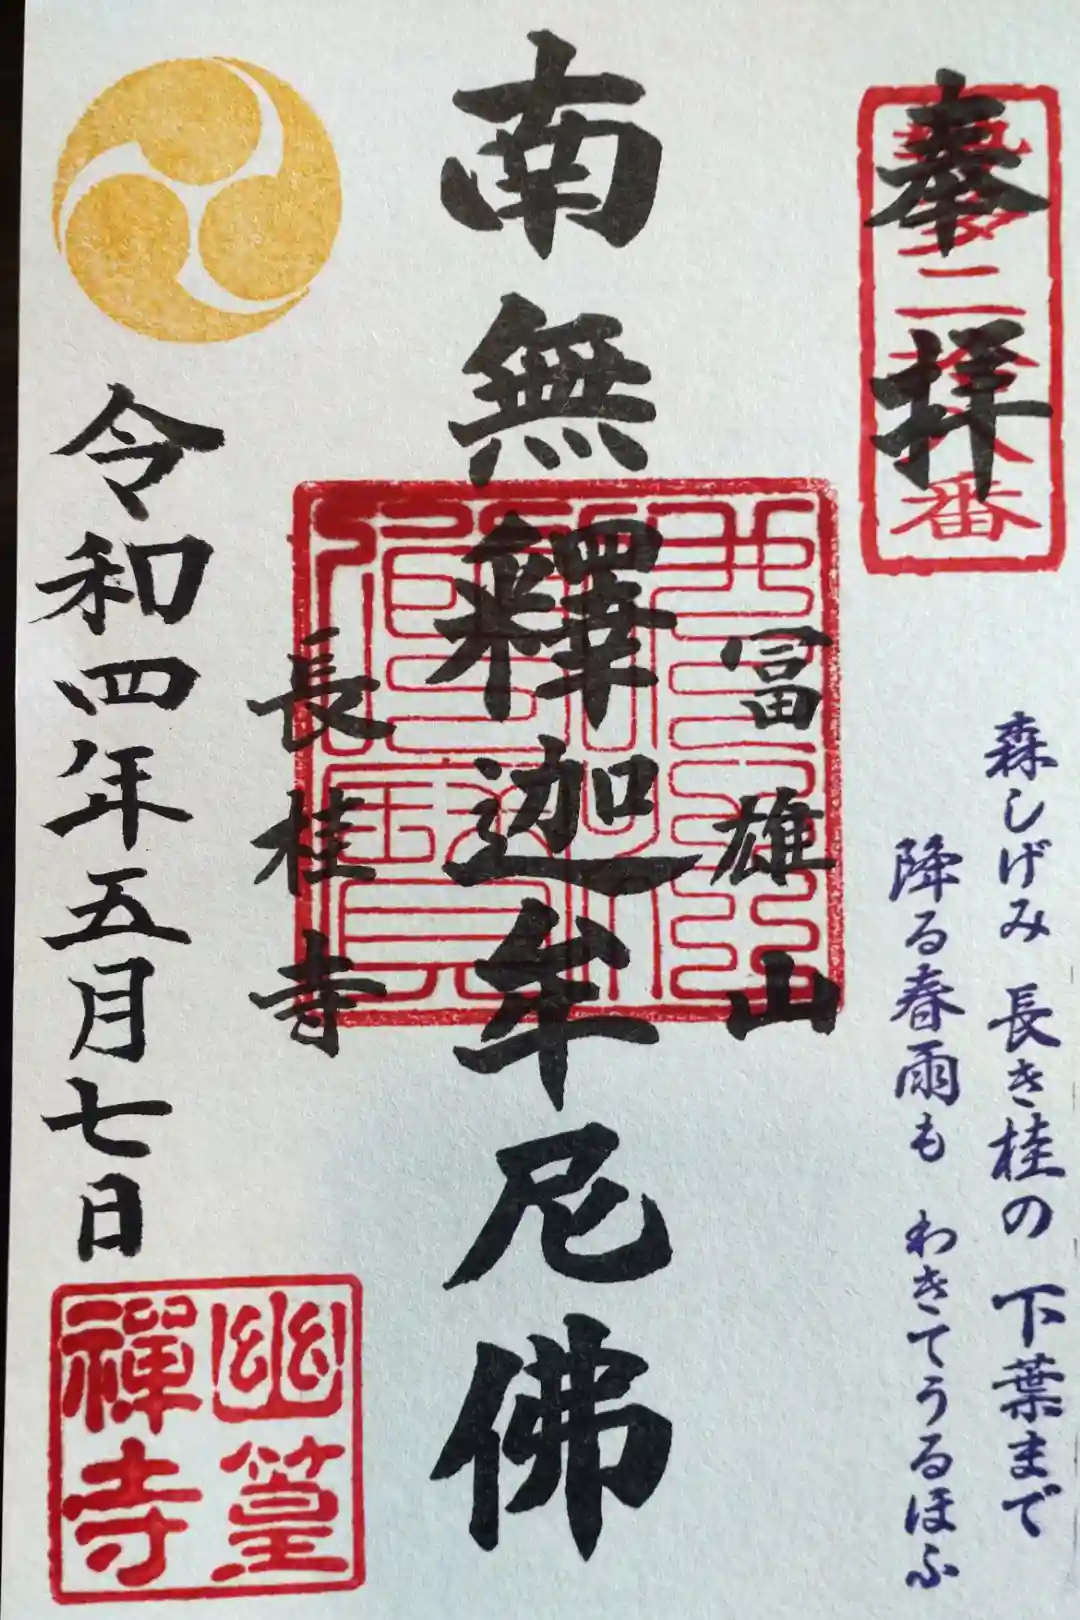 奉拝
二拾八番
森しげみ 長き桂の 下葉まで
降る春雨も わきてうるほふ
冨雄山
南無釋迦牟尼佛
長桂寺
令和四年五月七日
幽篁
禅寺